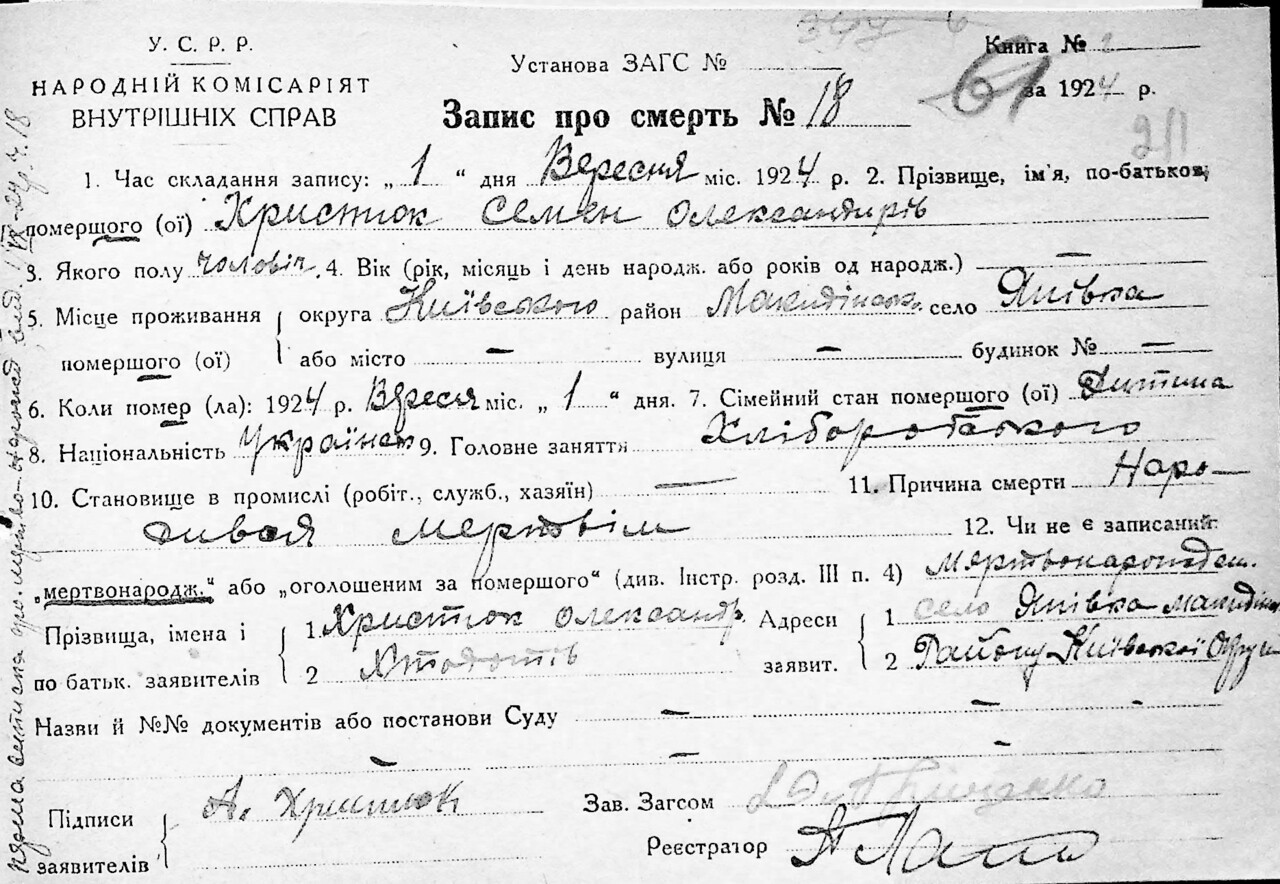 У. С. Р. Р.
НАРОДНІЙ КОМІСАРІЯТ
ВНУТРІШНІХ СПРАВ
Установа ЗАГС №
347 6
Книга № 2
за 1924 р.
61
211
Запис про смерть № 18
1. Час складання запису: „ 1 “ дня Вересня міс. 1924 р. 2. Прізвище, ім'я, по-батькові,
померщого (ої) Христюк Семен Олександирів
3. Якого полу чоловіч. 4. Вік (рік, місяць і день народж. або років од народж.) —
5. Місце проживання округа Київського район Макидінськ. село Янівка
померщого (ої) або місто — вулиця — будинок № —
6. Коли помер (ла): 1924 р. Вересня міс. „ 1 “ дня. 7. Сімейний стан померщого (ої) Дитина
8. Національність Українець 9. Головне заняття Хліборобського
10. Становище в промислі (робіт., служб., хазяїн) — 11. Причина смерти Наро-
дився мертвім 12. Чи не є записаний
„мертвонародж.“ або „оголошеним за померщого“ (див. Інстр. розд. III п. 4) Мертвонарожден.
Прізвища, імена і 1. Христюк Олександр. Адреси 1 село Янівка
по батьк. заявителів 2 заявит. 2 Району Київської Округи
Назви й №№ документів або постанови Суду — — —
— — —
Підписи
заявителів А. Христюк
Зав. Загсом
Реєстратор